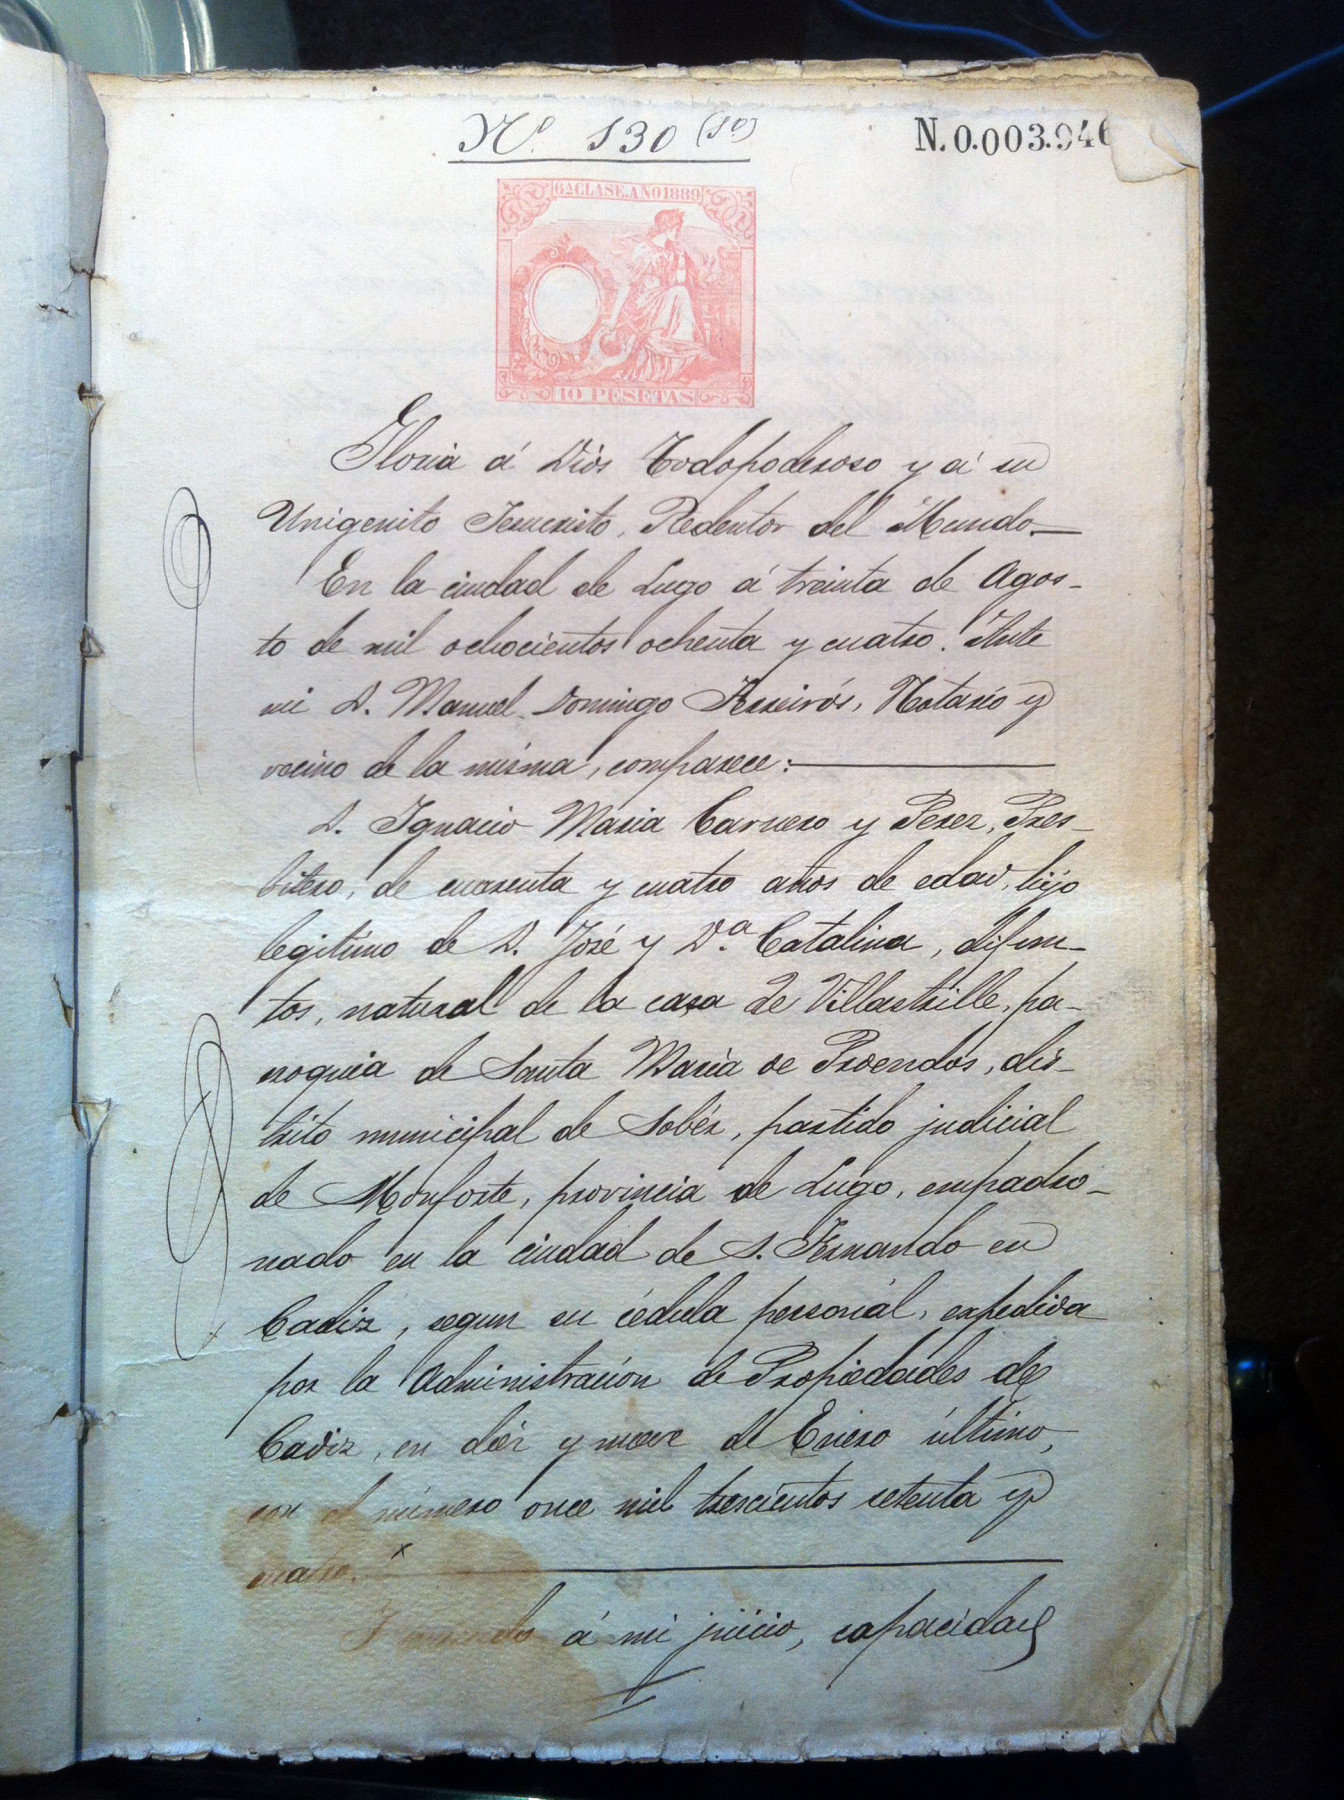 Nº 130 (1º)
N. 0.003.946
6ª CLASE. AÑO 1889
10 PESETAS
Gloria á Diós Todopoderoso y á su
Unigenito Jesucristo, Redentor del Mundo.—
En la ciudad de Lugo á treinta de Agos-
to de mil ochocientos ochenta y cuatro. Ante
mi D. Manuel Domingo Ferreirós, Notario y
vecino de la misma, comparece:—
D. Ignacio Maria Carnero y Perez, Pres-
bitero, de cuarenta y cuatro años de edad, hijo
legitimo de D. José y D.ª Catalina, difun-
tos, natural de la casa de Villastrille, pa-
rroquia de Santa María de Proendos, dis-
trito municipal de Sobér, partido judicial
de Monforte, provincia de Lugo, empadro-
nado en la ciudad de S. Fernando en
Cadiz, segun su cédula personal, expedida
por la Administración de Propiedades de
Cadiz, en diez y nueve de Enero último,
con el número once mil trescientos setenta y
cuatro.
á mi juicio, capacidad